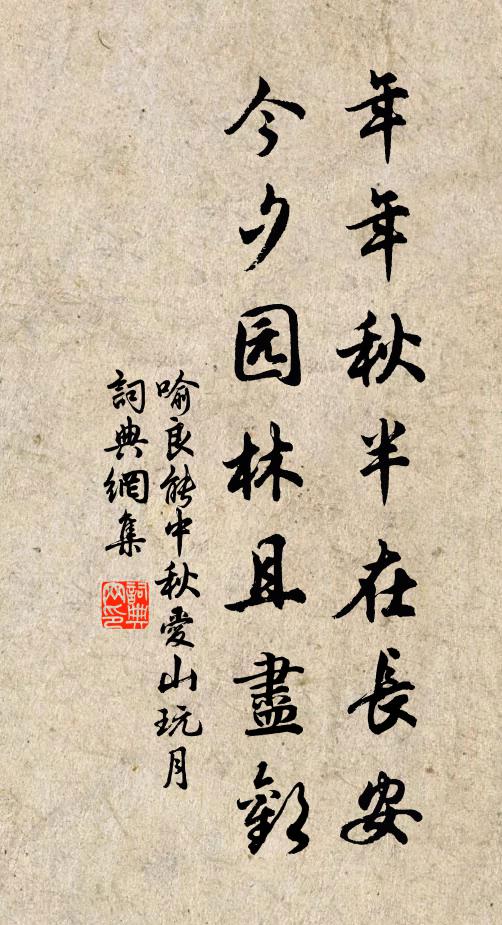 年年秋半在長安
今夕园林且盡歡
喻良能中秋愛山玩月
詞典網集
詞典网印